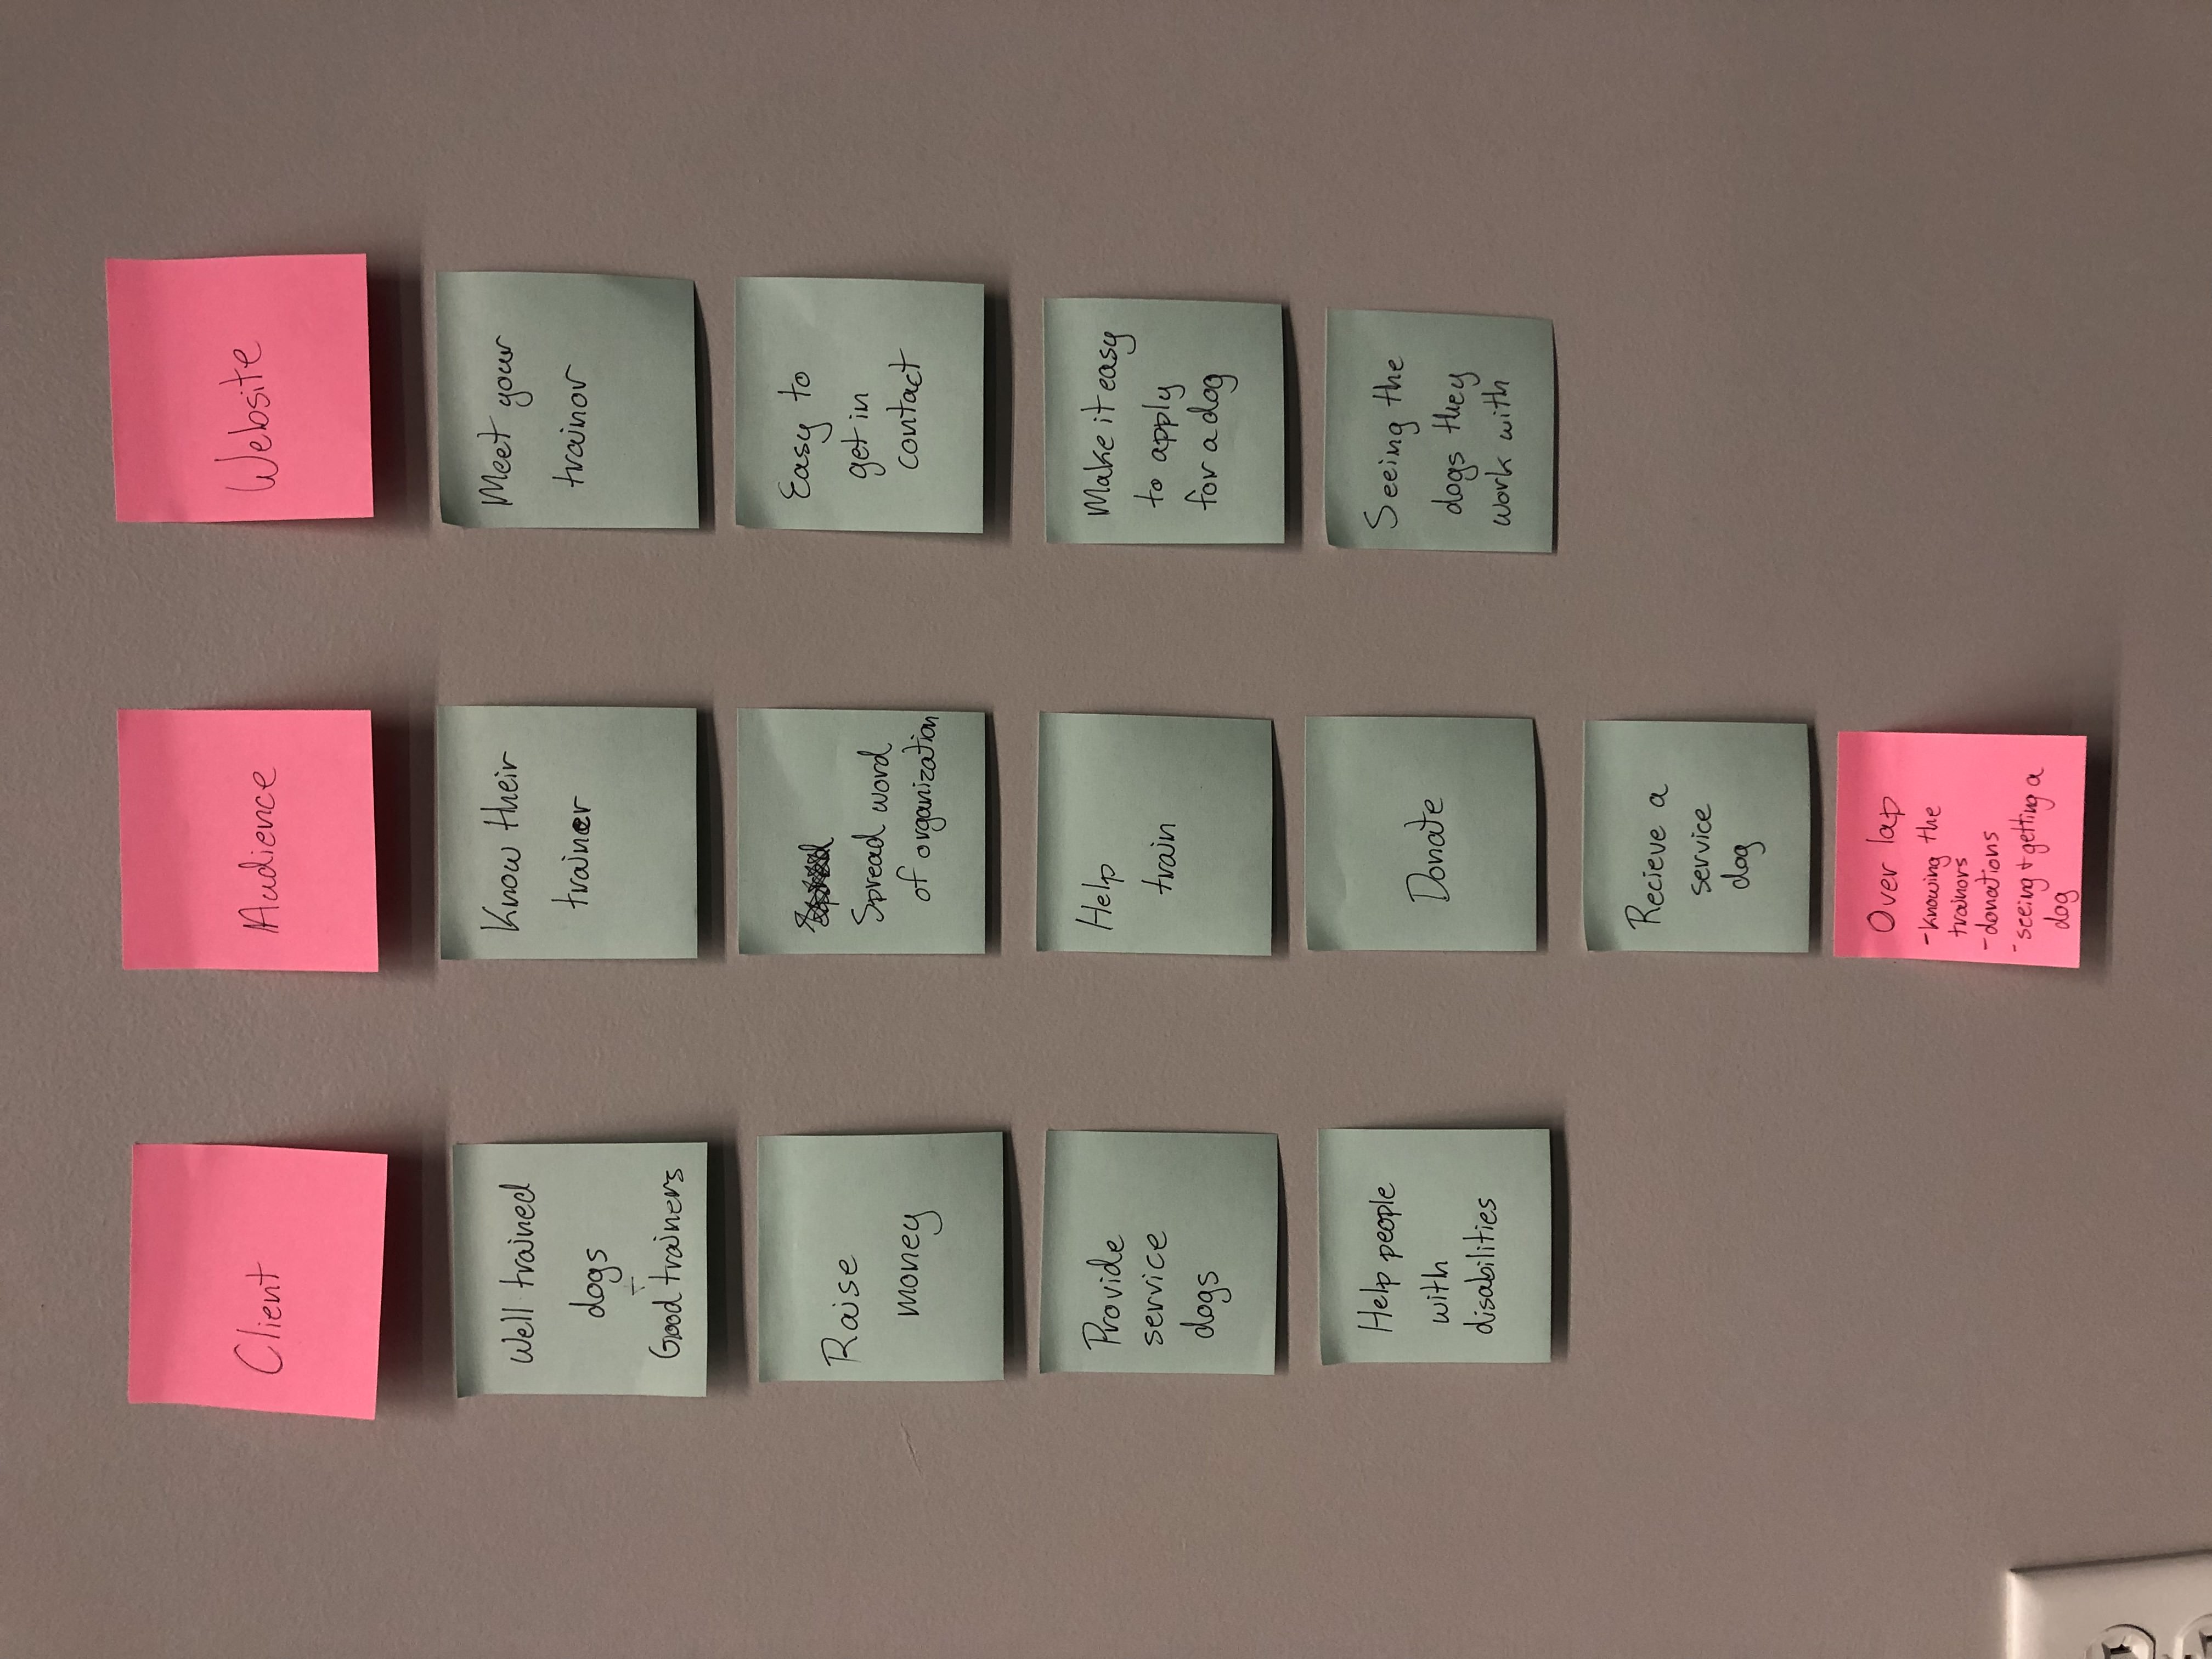 Client
Well trained
dogs
+
Good trainers
Raise
money
Provide
service
dogs
Help people
with
disabilities
Audience
Know their
trainer
Spread word
of organization
Help
train
Donate
Recieve a
service
dog
Over lap
-knowing the
trainors
-donations
-seeing + getting a
dog
Website
Meet your
trainor
Easy to
get in
contact
Make it easy
to apply
for a dog
Seeing the
dogs they
work with